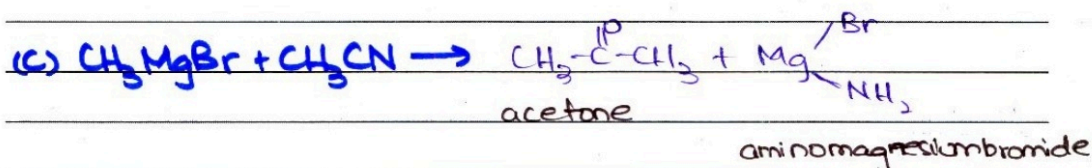 (C) CH₃MgBr + CH₃CN → CH₃-C(=O)-CH₃ + Mg(Br)(NH₂)
acetone
aminomagnesiumbromide